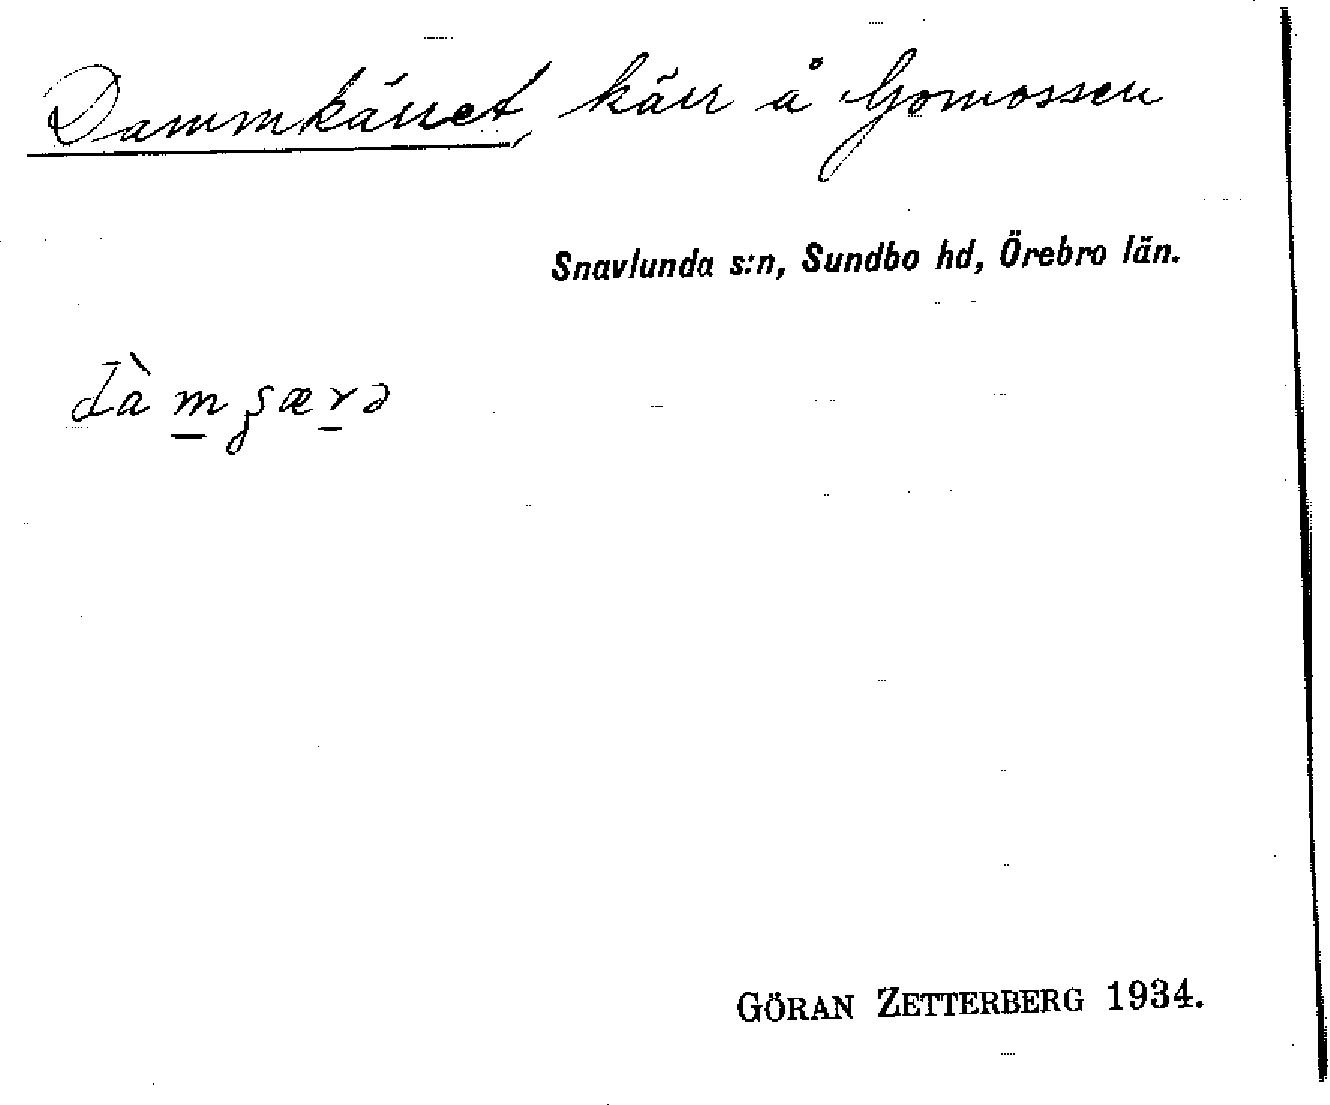 Dammkärret, kärr å Gomossen
Snavlunda s:n, Sundbo hd, Örebro län.
dàm̲ʂær̲ə
GÖRAN ZETTERBERG 1934.